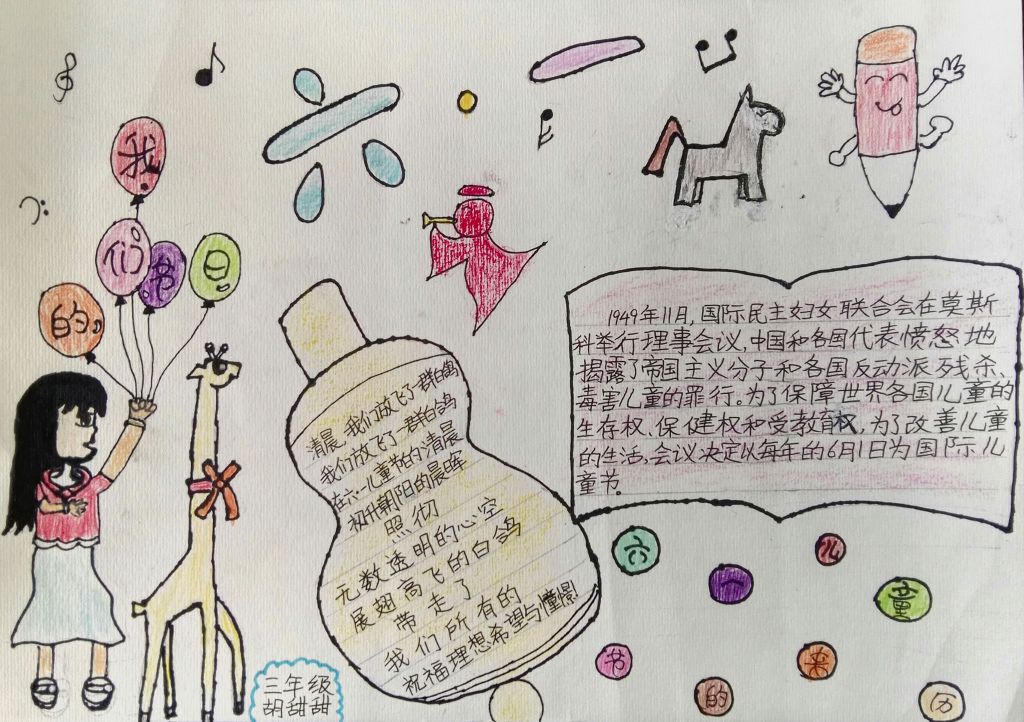 六一
我们的节日
1949年11月,国际民主妇女联合会在莫斯
科举行理事会议,中国和各国代表愤怒地
揭露了帝国主义分子和各国反动派残杀、
毒害儿童的罪行。为了保障世界各国儿童的
生存权、保健权和受教育权,为了改善儿童
的生活,会议决定以每年的6月1日为国际儿
童节。
清晨,我们放飞了一群白鸽
我们放飞了一群白鸽
在六一儿童节的清晨
初升朝阳的晨晖
照彻
无数透明的心空
展翅高飞的白鸽
带走了
我们所有的
祝福理想希望与憧憬
六一儿童
节的来历
三年级
胡甜甜